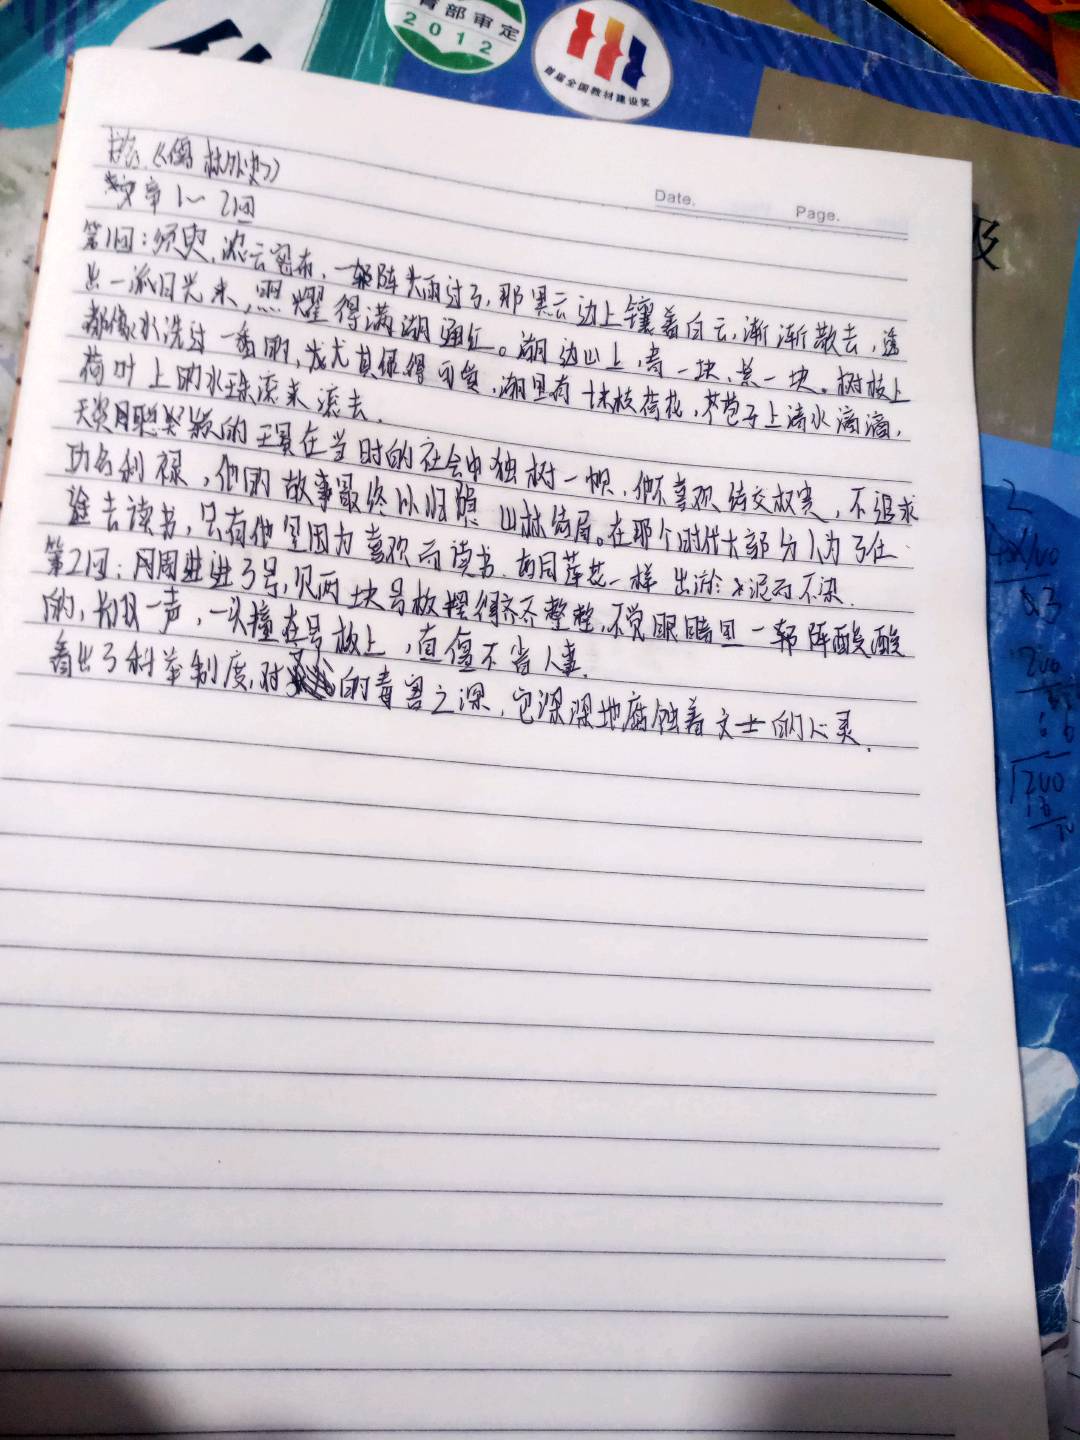 育部审定
2012
首届全国教材建设奖
《儒林外史》
章1~2回
Date.
Page.
第1回:须臾,浓云密布,一阵大雨过了,那黑云边上镶着白云,渐渐散去,透
出一派日光来,照耀得满湖通红。湖边山上,青一块,紫一块。树枝上
都像水洗过一番的,尤其绿得可爱,湖里有十来枝荷花,苞子上清水滴滴,
荷叶上的水珠滚来滚去.
天资聪颖的王冕在当时的社会中独树一帜,他不喜欢结交权贵,不追求
功名利禄,他的故事最终以归隐山林结局。在那个时代大部分人为了仕
途去读书,只有他是因为喜欢而读书.如同莲花一样出淤泥而不染.
第2回:周进进了号,见两块号板摆得齐齐整整,不觉眼睛里一阵酸酸
的,长叹一声,一头撞在号板上,直僵不省人事.
看出了科举制度,对的毒害之深,它深深地腐蚀着文士的心灵.
级
2
200
200